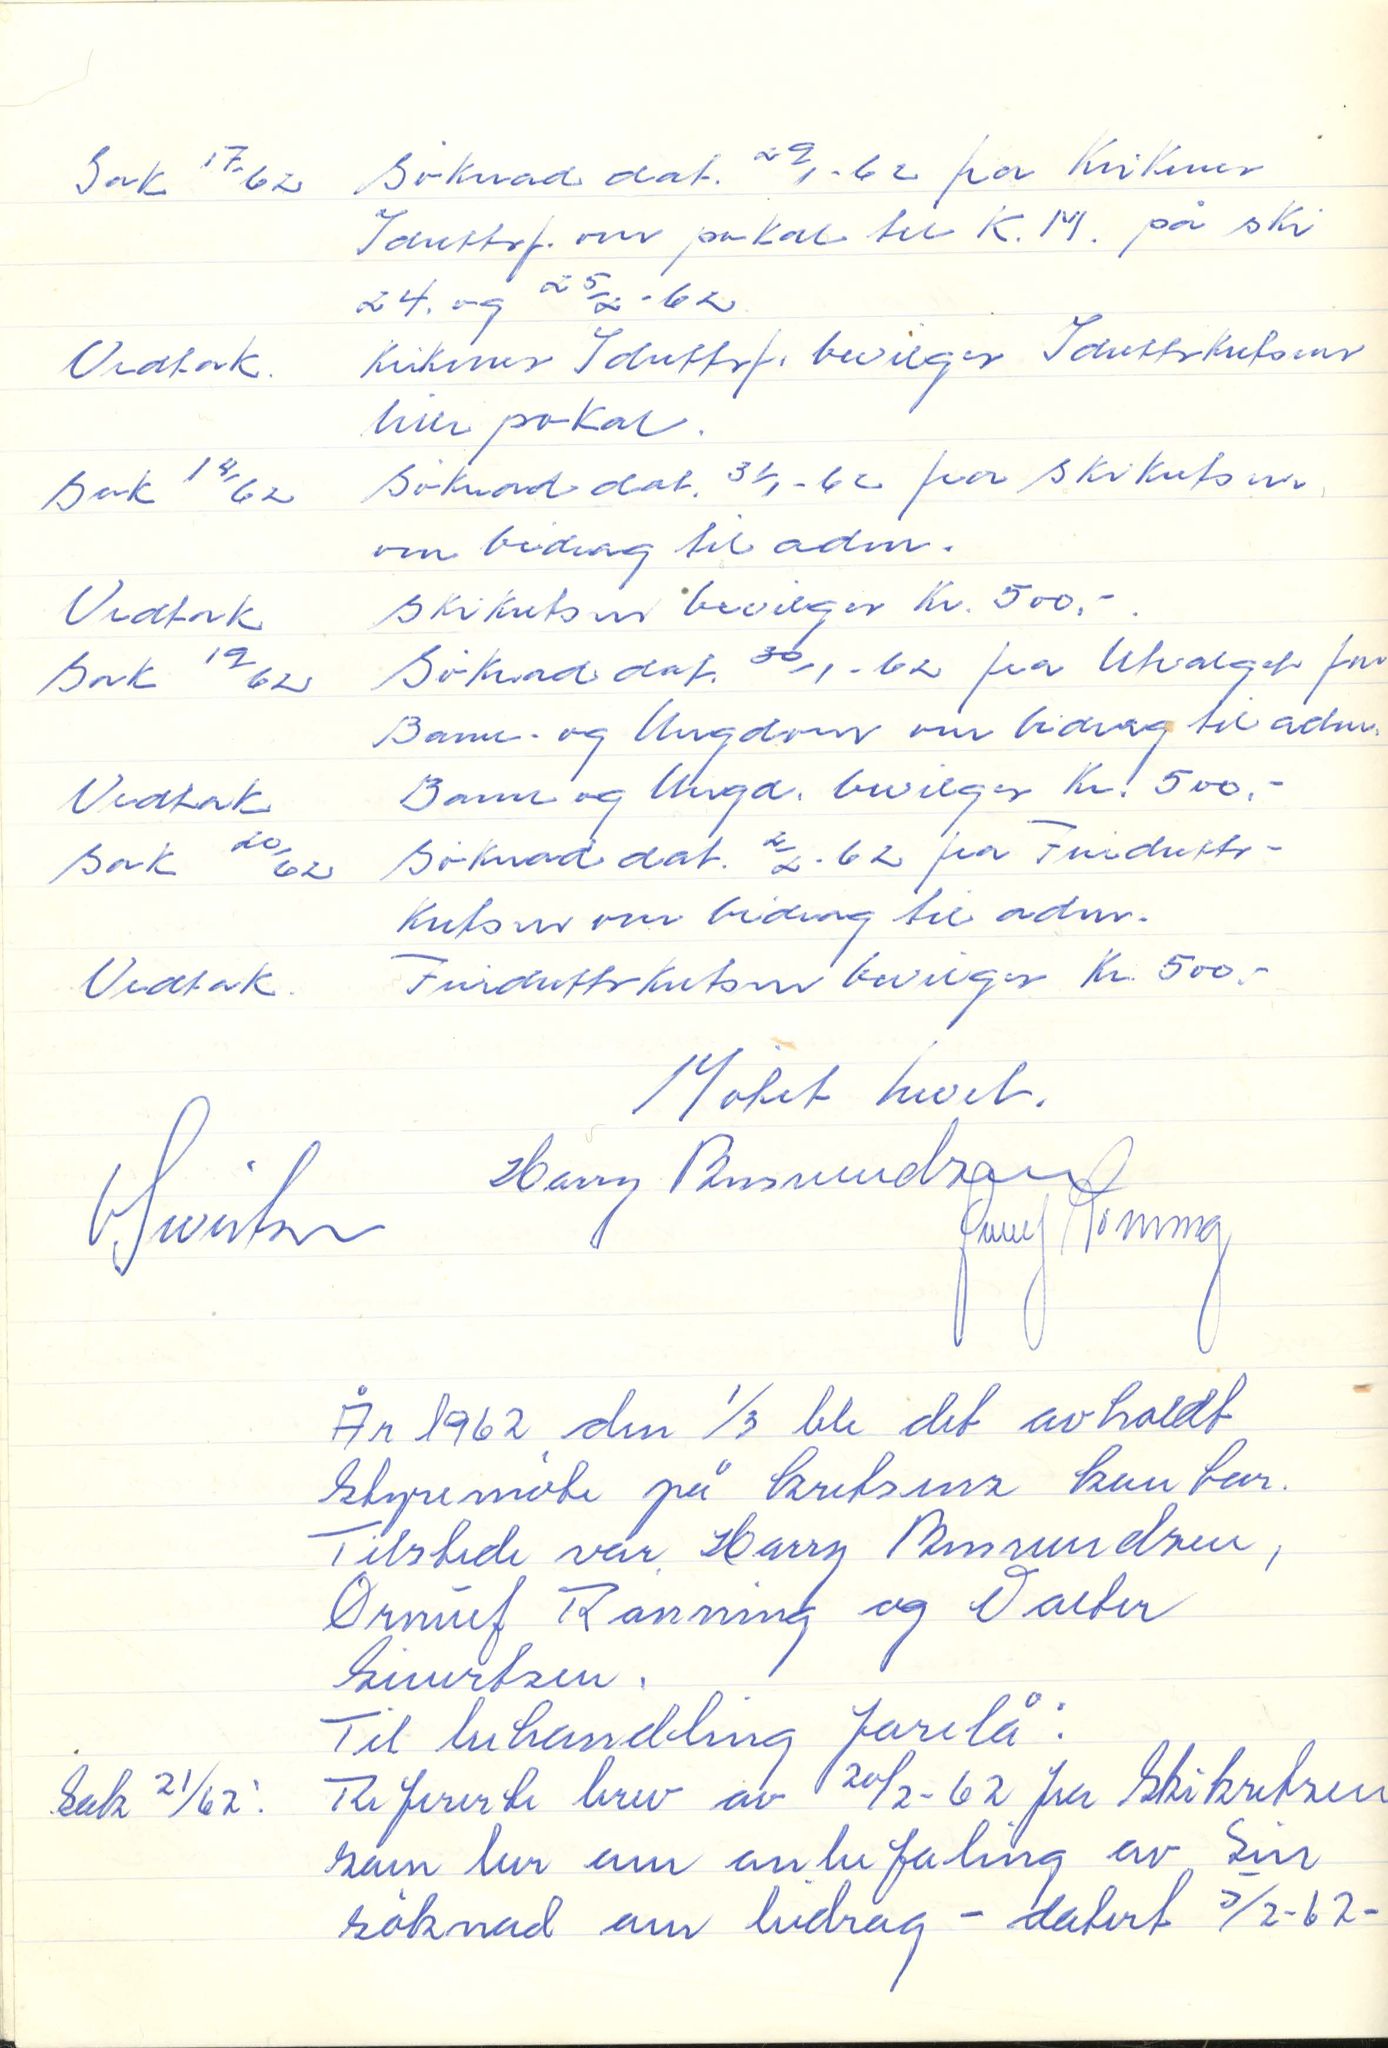 Sak 17/62 Söknad dat. 29/1-62 fra Kirkenes
Idrettsf. om pokal til K.M. på ski
24. og 25/2-62
Vedtak. Kirkenes Idrettsf. bevilges Idrettskretsens
lille pokal.
Sak 18/62 Söknad dat. 31/1-62 fra Skikretsen
om bidrag til adm.
Vedtak Skikretsen bevilges Kr. 500,-.
Sak 19/62 Söknad dat. 30/1-62 fra Utvalget for
Barne- og Ungdom om bidrag til adm.
Vedtak Barne og Ungd. bevilges Kr. 500,-
Sak 20/62 Söknad dat. 2/2-62 fra Friidretts-
kretsen om bidrag til adm.
Vedtak. Friidrettskretsen bevilges Kr. 500,-
Mötet hevet.
Harry
År 1962 den 1/3 ble det avholdt
styremöte på kretsens kontor.
Tilstede var Harry
Ørnulf Rönning og Valter
Sivertsen.
Til behandling forelå:
Sak 21/62: Refererte brev av 20/2-62 fra Skikretsen
som ber om anbefaling av sin
söknad om bidrag - datert 5/2-62-